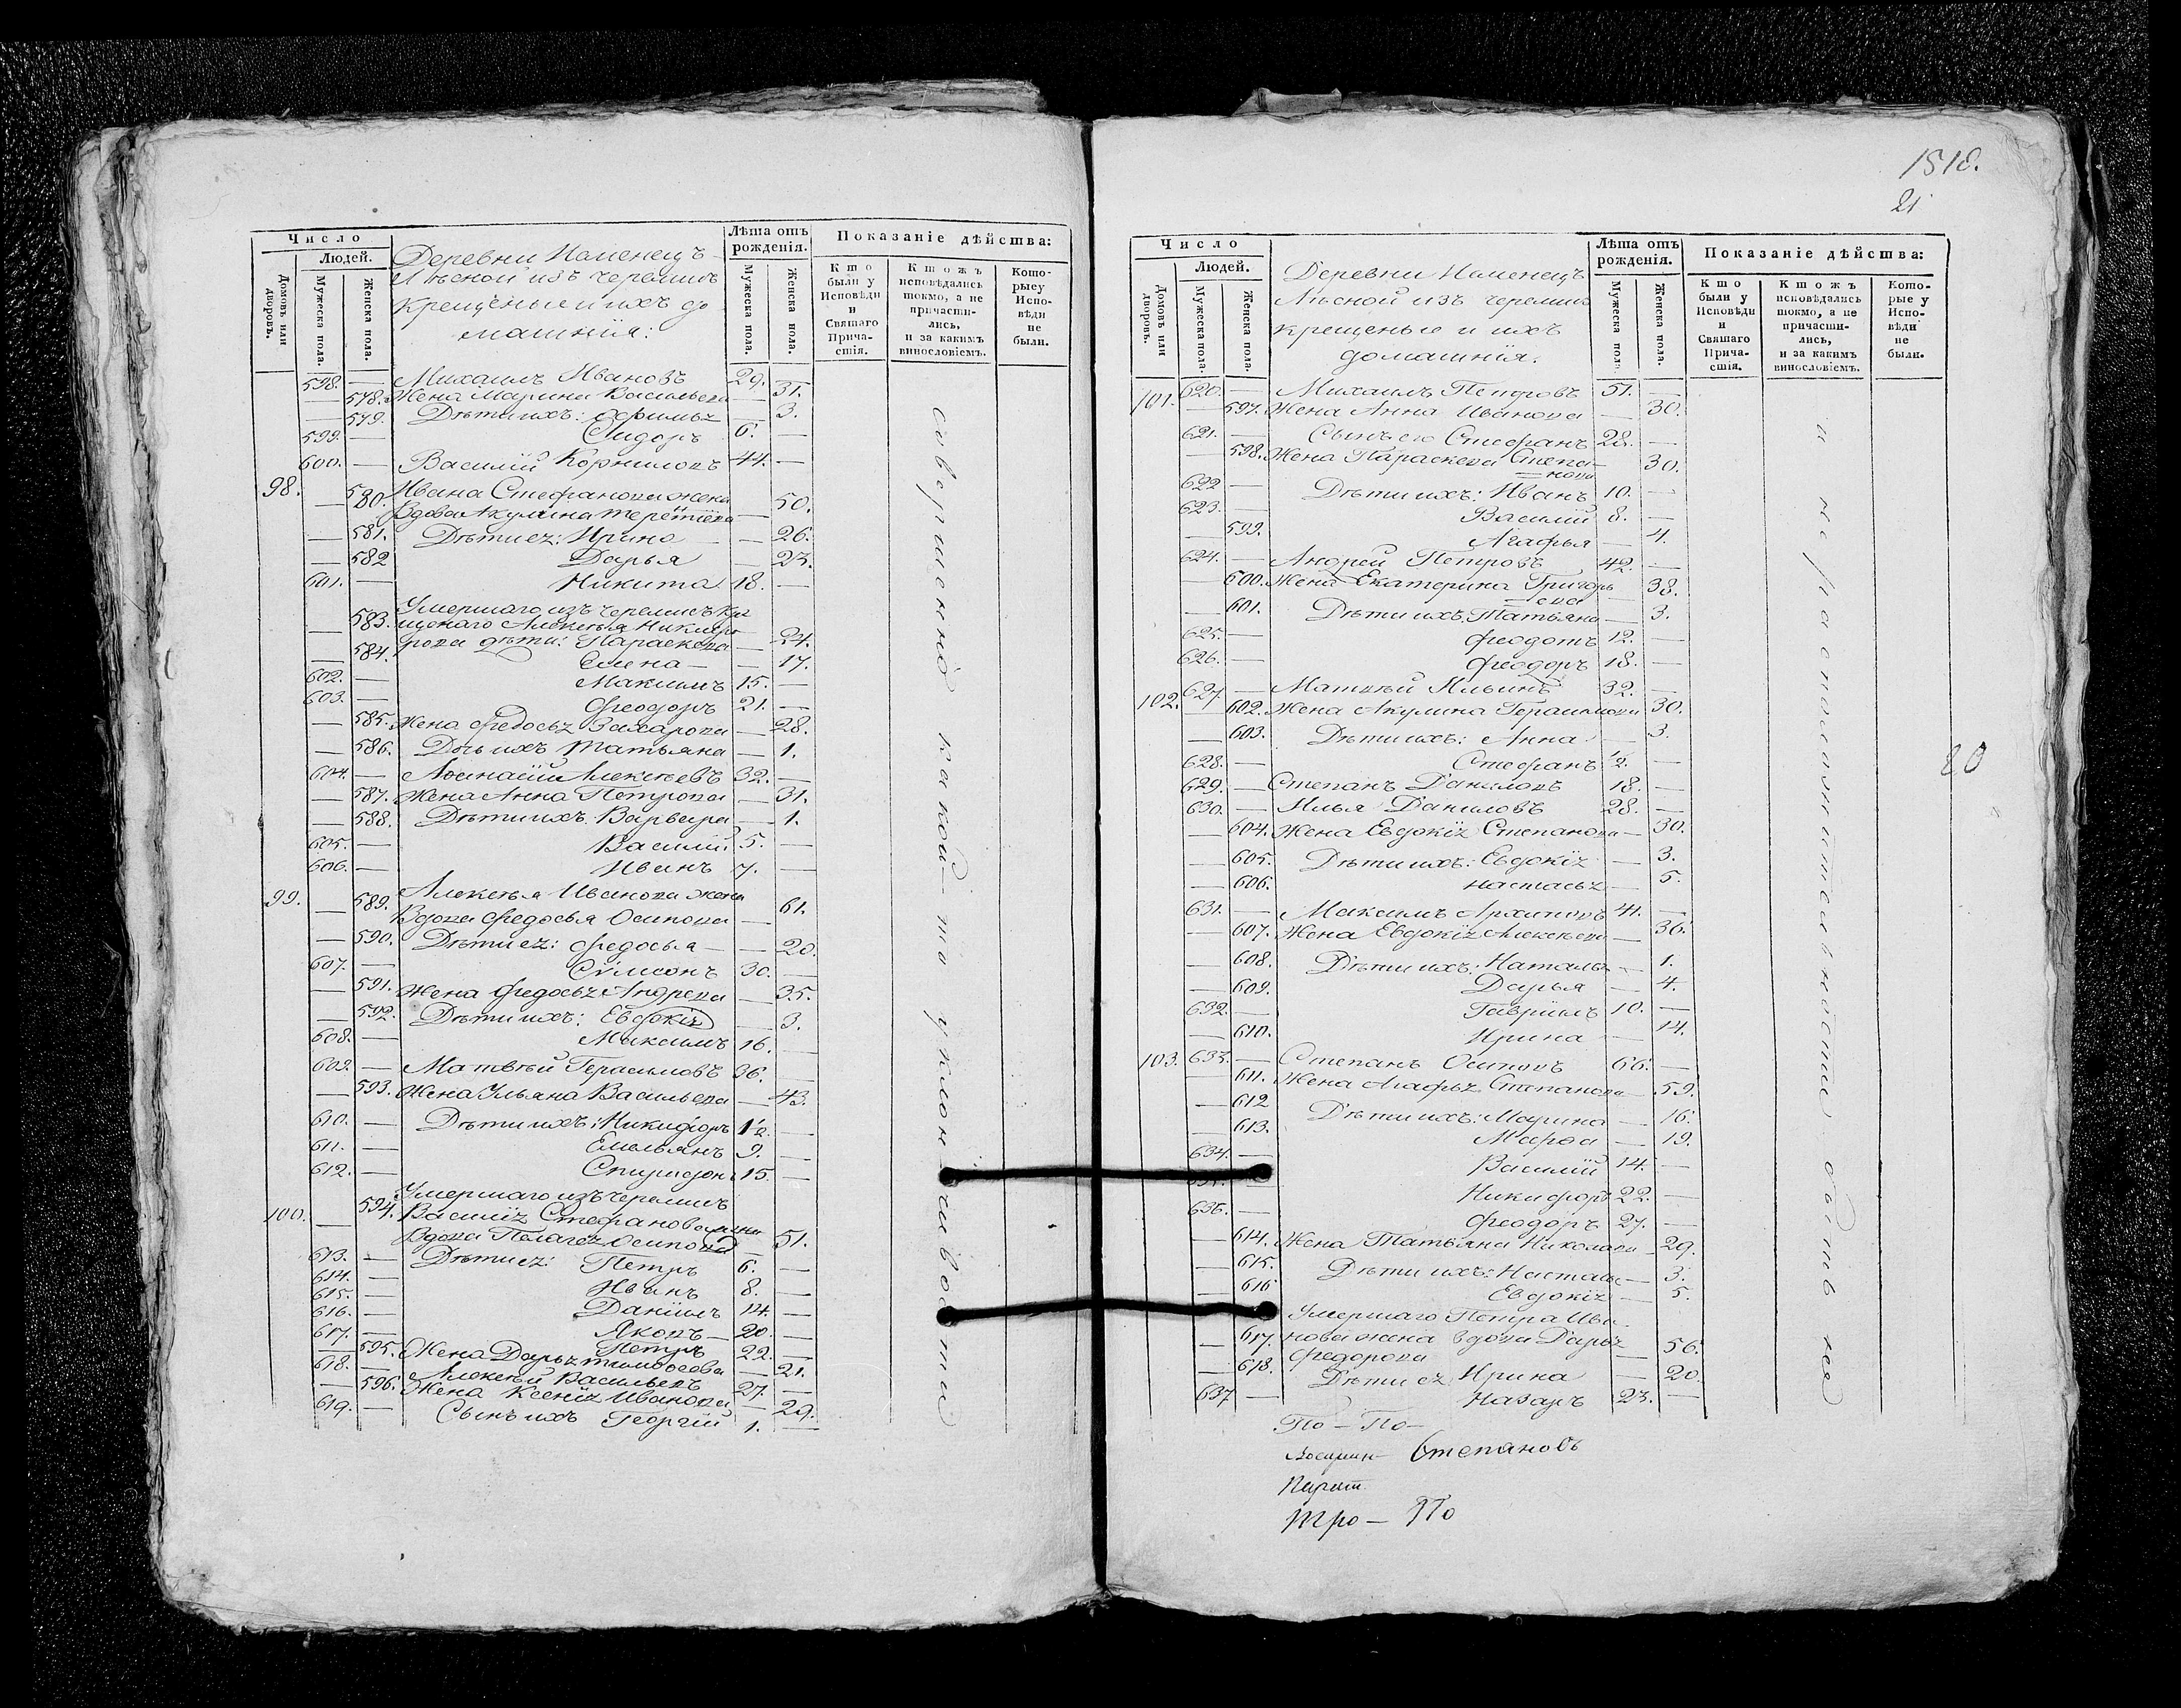 Число
Людей.
Домовъ или дворовъ.
Мужеска пола.
Женска пола.
Деревни Иаменецъ
Лѣсной изъ черемисъ
крещеные и ихъ до
машнїя:
Лѣта отъ рожденія.
Мужеска пола.
Женска пола.
Показаніе дѣйства:
Кто были у Исповѣди и Святаго Причастія.
Ктожъ исповѣдались токмо, а не причастились, и за какимъ винословіемъ.
Которые у Исповѣди не были.
598. — Михаилъ Ивановъ 29. —
— 578. Жена Марина Васильева — 31.
— 579. Дѣти ихъ: — 3.
599. — Сидоръ 6. —
600. — Василїй Корниловъ 44. —
98. — 580. Ивана Стефанова жена
Вдова Акулина Терентїева — 50.
— 581. Дѣти ея: Ирина — 26.
— 582 Дарья — 23.
601. — Никита 18. —
Умершаго изъ черемисъ кре
— 583. щенаго Алексѣя Никифо
рова дѣти: Параскева — 24.
— 584. Елена — 17.
602. — Максимъ 15. —
603. — Феодоръ 21. —
— 585. Жена Федосья Захарова — 28.
— 586. Дочь ихъ Татьяна — 1.
604. — Афанасїй Алексѣевъ 32. —
— 587. Жена Анна Петрова — 31.
— 588. Дѣти ихъ Варвара — 1.
605. — Василїй 5. —
606. — Иванъ 7. —
99. — 589. Алексѣя Иванова жена
Вдова Федосья Осипова — 61.
— 590. Дѣти ея: Федосья — 20.
607. — Сѵмеонъ 30. —
— 591. Жена Федосья Андреева — 35.
— 592. Дѣти ихъ: Евдокїя — 3.
608. — Максимъ 16. —
609. — Матвѣй Герасимовъ 36. —
— 593. Жена Ульяна Васильева — 43.
610. — Дѣти ихъ: Никифоръ 1/2. —
611. — Емельянъ 9. —
612. — 15. —
Умершаго изъ черемисъ
100. — 594. Василїя Стефанова жена
Вдова Пелагея Осипова — 51.
613. — Дѣти ея: Петръ 6. —
614. — Иванъ 8. —
615. — Данїилъ 14. —
616. — Яковъ 20. —
617. — Петръ 22. —
— 595. Жена Дарья Тимофеева — 21.
618. — Алексѣй Васильевъ 27. —
— 596. Жена Ксенїя Иванова — 29.
619. — Сынъ ихъ Георгїй 1. —
совершенно какой-то уклончивости
1518.
21
Число
Людей.
Домовъ или дворовъ.
Мужеска пола.
Женска пола.
Деревни Иаменецъ
Лѣсной изъ черемисъ
крещеные и ихъ
домашнїя.
Лѣта отъ рожденія.
Мужеска пола.
Женска пола.
Показаніе дѣйства:
Кто были у Исповѣди и Святаго Причастія.
Ктожъ исповѣдались токмо, а не причастились, и за какимъ винословіемъ.
Которые у Исповѣди не были.
101. 620. — Михаилъ Петровъ 51. —
— 597. Жена Анна Иванова — 30.
621. — Сынъ его Стефанъ 28. —
— 598. Жена Параскева Степа-
нова 30.
622 — Дѣти ихъ: Иванъ 10. —
623. — Василїй 8. —
— 599. Агафья — 4.
624. — Андрей Петровъ 42. —
— 600. Жена Екатерина Григорь
ева — 38.
— 601. Дѣти ихъ: Татьяна — 3.
625. — Феодотъ 12. —
626. — Феодоръ 18. —
102. 627 — Матвѣй Ильинъ 32. —
— 602. Жена Акулина Герасимова 30.
— 603. Дѣти ихъ: Анна — 3.
628. — Стефанъ 1/2. —
629. — Степанъ Даниловъ 18. —
630. — Илья Даниловъ 28. —
— 604. Жена Евдокїя Степанова — 30.
— 605. Дѣти ихъ: Евдокїя — 3.
— 606. Настасья — 5.
631. — Максимъ Архиповъ 41. —
— 607. Жена Евдокїя Алексѣева — 36.
— 608. Дѣти ихъ: Наталья — 1.
— 609. Дарья — 4.
632. — Гаврїилъ 10. —
— 610. Ирина — 14.
103. 633. — Степанъ Осиповъ 66. —
— 611. Жена Агафья Степанова — 59.
— 612 Дѣти ихъ: Марина — 16.
— 613. Марфа — 19.
634. — Василїй 14. —
635. — Никифоръ 22. —
636. — Феодоръ 27. —
— 614. Жена Татьяна Николаева — 29.
— 615. Дѣти ихъ: Настасья — 3.
— 616 Евдокїя — 5.
Умершаго Петра Ива-
— 617. нова жена вдова Дарья
Федорова — 56.
— 618. Дѣти ея Ирина — 20.
637 — Назаръ 23. —
и нерасположительности объ нея
20
По — По —
Степановъ
Тро — По